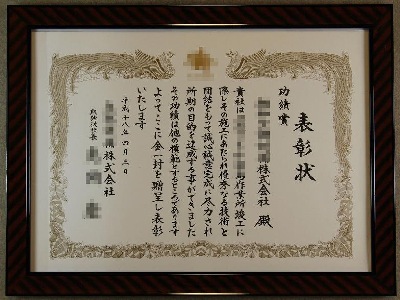 表彰状
功績賞
株式会社 殿
貴社は 作業所竣工に
際しその施工にあたられ優秀なる技術と
団結をもって誠心誠意完成に尽力され
所期の目的を達成する事ができました
その功績は他の模範とするところであります
よってここに金一封を贈呈し表彰
いたします
平成十八年四月三日
株式会社
取締役社長